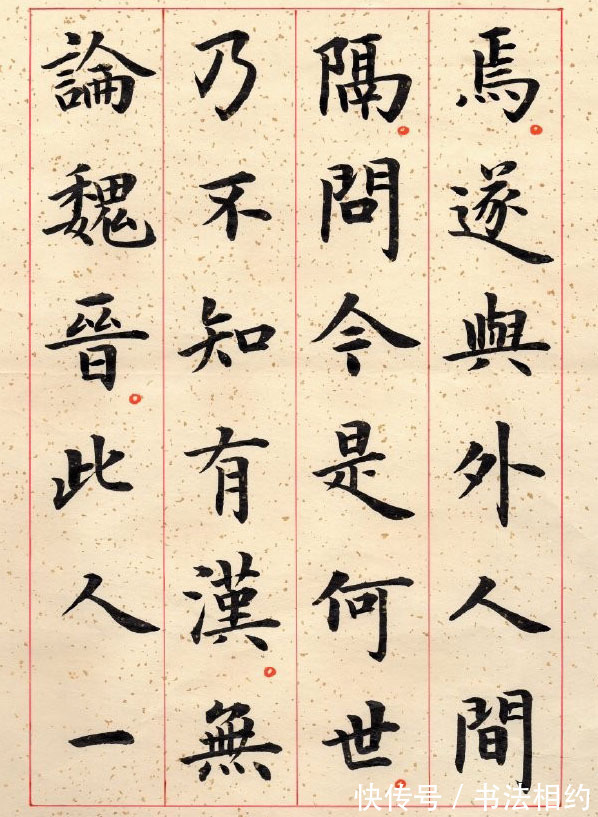 焉。遂與外人間
隔。問今是何世。
乃不知有漢。無
論魏晉。此人一
快传号 / 书法相约